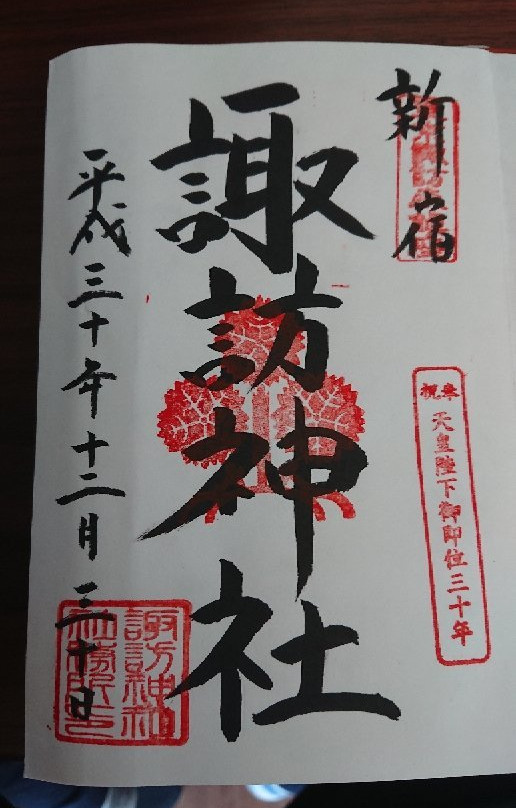 新宿
奉祝 天皇陛下御即位三十年
諏訪神社
平成三十年十二月三十日
諏訪神社
社務所之印